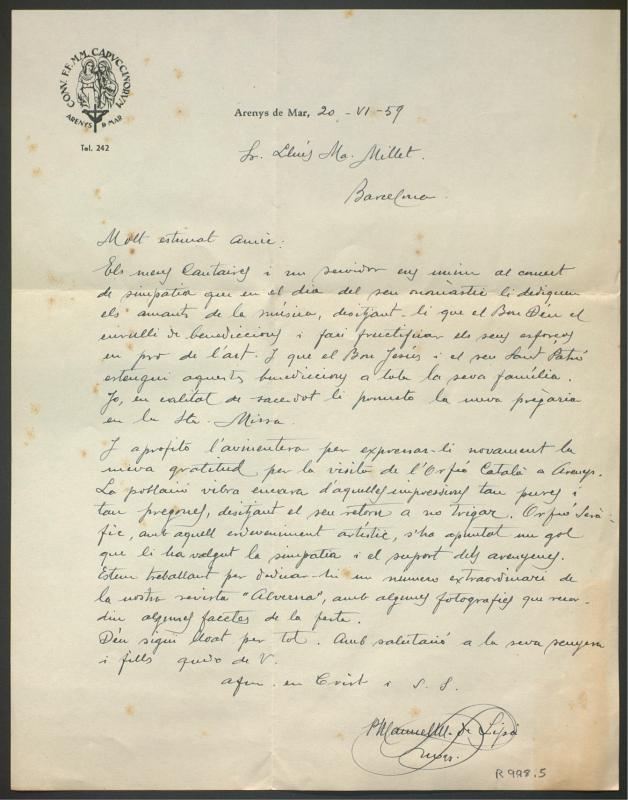 CONV. F.F. M.M. CAPVCCINORVM
ARENYS D MAR
Tel. 242
Arenys de Mar, 20 - VI - 59
Sr. Lluís Ma. Millet.
Barcelona.
Molt estimat amic:
Els meus Cantaires i un servidor ens unim al concert
de simpatia que en el dia del seu onomàstic li dediquen
els amants de la música, desitjant-li que el Bon Déu el
curulli de benediccions i faci fructificar els seus esforços
en pro de l'art. I que el Bon Jesús i el seu Sant Patró
estengui aquestes benediccions a tota la seva família.
Jo, en qualitat de sacerdot li prometo la meva pregària
en la Sta. Missa.
I aprofito l'avinentesa per expressar-li novament la
meva gratitud per la visita de l'Orfeó Català a Arenys.
La població vibra encara d'aquelles impressions tan pures i
tan pregones, desitjant el seu retorn a no trigar. Orfeó Serà-
fic, amb aquell esdeveniment artístic, s'ha apuntat un gol
que li ha valgut la simpatia i el suport dels arenyencs.
Estem treballant per dedicar-hi un número extraordinari de
la nostra revista "Alverna", amb algunes fotografies que recor-
din algunes facetes de la festa.
Déu sigui lloat per tot. Amb salutació a la seva senyora
i fills quedo de V.
afm. en Crist i S. S.
P. Manuel M. de
R 998.5